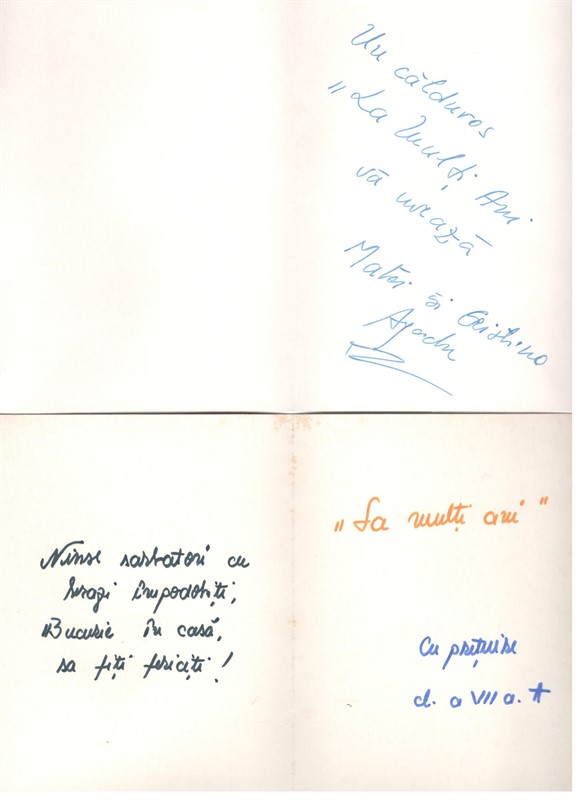 Un călduros
"La Mulți Ani
vă urează
Matei și Cristina
Ninse sarbatori cu
brazi împodobiți,
Bucurie în casă,
sa fiți fericiți!
"La mulți ani"
Cu prețuire
cl. a VII a. A